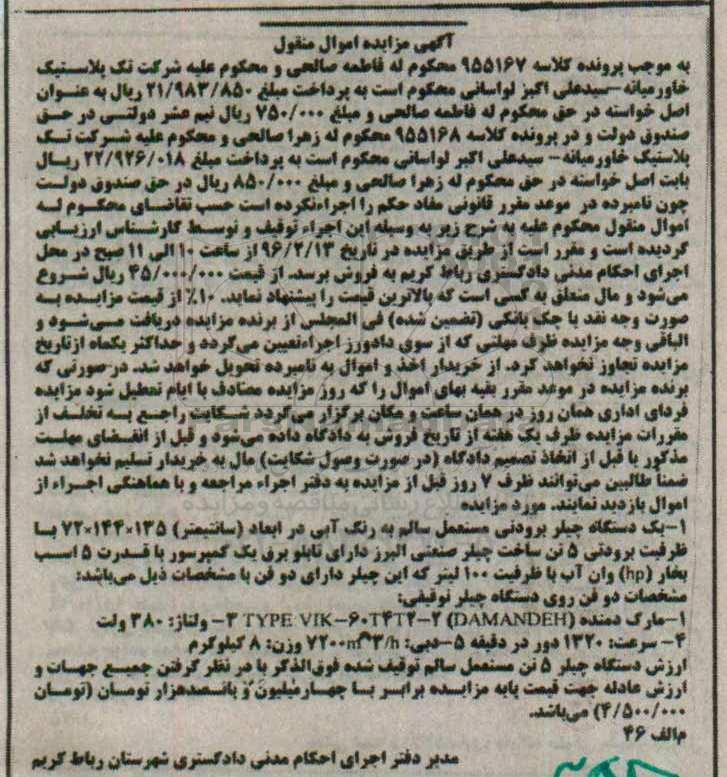 آگهی مزایده اموال منقول
به موجب پرونده کلاسه ۹۵۵۱۶۷ محکوم له فاطمه صالحی و محکوم علیه شرکت تک پلاستیک
خاورمیانه-سیدعلی اکبر لواسانی محکوم است به پرداخت مبلغ ۲۱/۹۸۳/۸۵۰ ریال به عنوان
اصل خواسته در حق محکوم له فاطمه صالحی و مبلغ ۷۵۰/۰۰۰ ریال نیم عشر دولتی در حق
صندوق دولت و در پرونده کلاسه ۹۵۵۱۶۸ محکوم له زهرا صالحی و محکوم علیه شرکت تک
پلاستیک خاورمیانه- سیدعلی اکبر لواسانی محکوم است به پرداخت مبلغ ۲۲/۹۲۶/۰۱۸ ریال
بابت اصل خواسته در حق محکوم له زهرا صالحی و مبلغ ۸۵۰/۰۰۰ ریال در حق صندوق دولت
چون نامبرده در موعد مقرر قانونی مفاد حکم را اجراءنکرده است حسب تقاضای محکوم له
اموال منقول محکوم علیه به شرح زیر به وسیله این اجراء توقیف و توسط کارشناس ارزیابی
گردیده است و مقرر است از طریق مزایده در تاریخ ۹۶/۲/۱۳ از ساعت ۱۰ الی ۱۱ صبح در محل
اجرای احکام مدنی دادگستری رباط کریم به فروش برسد. از قیمت ۴۵/۰۰۰/۰۰۰ ریال شروع
می‌شود و مال متعلق به کسی است که بالاترین قیمت را پیشنهاد نماید. ۱۰٪ از قیمت مزایده به
صورت وجه نقد یا چک بانکی (تضمین شده) فی المجلس از برنده مزایده دریافت می‌شود و
الباقی وجه مزایده ظرف مهلتی که از سوی دادورز اجراءتعیین می‌گردد و حداکثر یکماه ازتاریخ
مزایده تجاوز نخواهد کرد. از خریدار اخذ و اموال به نامبرده تحویل خواهد شد. در صورتی که
برنده مزایده در موعد مقرر بقیه بهای اموال را که روز مزایده مصادف با ایام تعطیل شود مزایده
فردای اداری همان روز در همان ساعت و مکان برگزار می‌گردد شکایت راجع به تخلف از
مقررات مزایده ظرف یک هفته از تاریخ فروش به دادگاه داده می‌شود و قبل از انقضای مهلت
مذکور یا قبل از اتخاذ تصمیم دادگاه (در صورت وصول شکایت) مال به خریدار تسلیم نخواهد شد
ضمناً طالبین می‌توانند ظرف ۷ روز قبل از مزایده به دفتر اجراء مراجعه و با هماهنگی اجراء از
اموال بازدید نمایند. مورد مزایده
۱-یک دستگاه چیلر برودتی مستعمل سالم به رنگ آبی در ابعاد (سانتیمتر) ۱۳۵×۱۴۴×۷۲ با
ظرفیت برودتی ۵ تن ساخت چیلر صنعتی البرز دارای تابلو برق یک کمپرسور با قدرت ۵ اسب
بخار (hp) وان آب با ظرفیت ۱۰۰ لیتر که این چیلر دارای دو فن با مشخصات ذیل می‌باشد:
مشخصات دو فن روی دستگاه چیلر توقیفی:
۱-مارک دمنده (DAMANDEH) ۲-TYPE VIK-۶۰T۴T۲ ۳- ولتاژ: ۳۸۰ ولت
۴- سرعت: ۱۳۲۰ دور در دقیقه ۵-دبی: ۷۲۰۰m^۳/h وزن: ۸ کیلوگرم
ارزش دستگاه چیلر ۵ تن مستعمل سالم توقیف شده فوق‌الذکر با در نظر گرفتن جمیع جهات و
ارزش عادله جهت قیمت پایه مزایده برابر با چهارمیلیون و پانصدهزار تومان (تومان
۴/۵۰۰/۰۰۰) می‌باشد.
م‌الف ۴۶
مدیر دفتر اجرای احکام مدنی دادگستری شهرستان رباط کریم